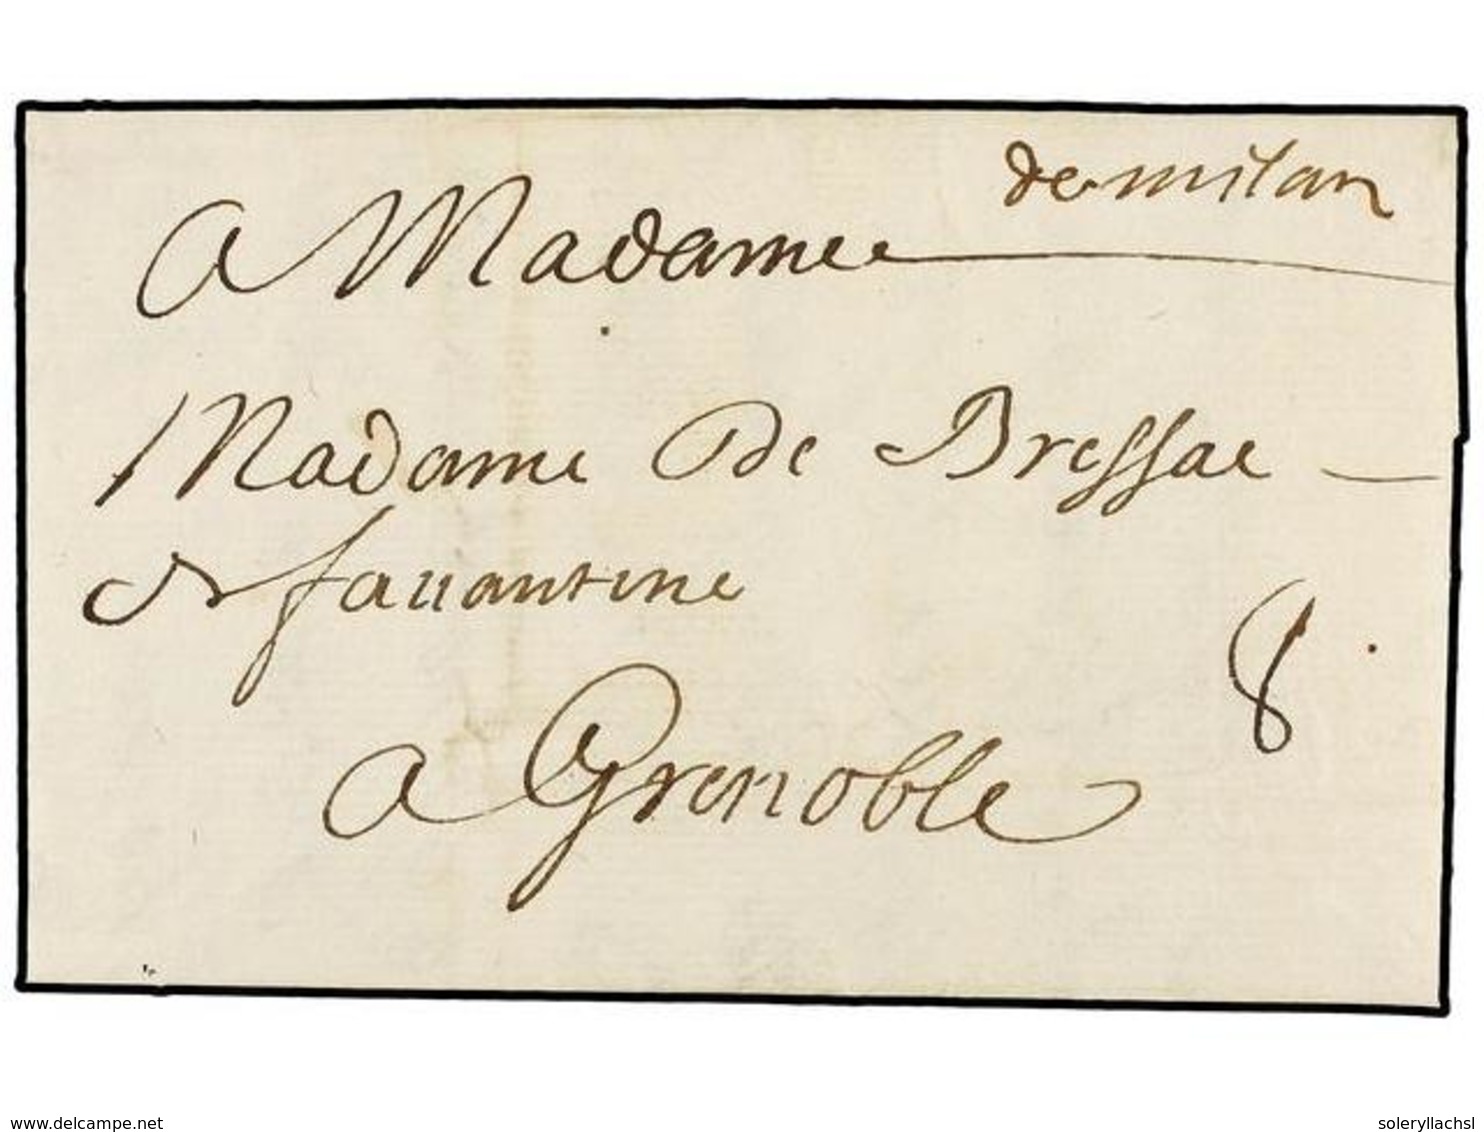 de milan
a Madame
Madame De Bressac
a Grenoble
8
www.delcampe.net
soleryllachsl